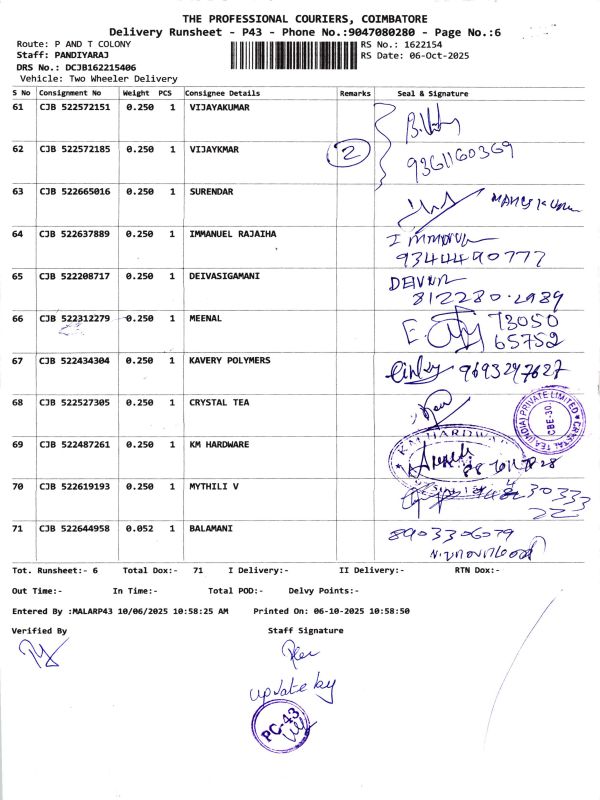 THE PROFESSIONAL COURIERS, COIMBATORE
Delivery Runsheet - P43 - Phone No.:9047080280 - Page No.:6
Route: P AND T COLONY RS No.: 1622154
Staff: PANDIYARAJ RS Date: 06-Oct-2025
DRS No.: DCJB162215406
Vehicle: Two Wheeler Delivery
S No Consignment No Weight PCS Consignee Details Remarks Seal & Signature
61 CJB 522572151 0.250 1 VIJAYAKUMAR
62 CJB 522572185 0.250 1 VIJAYKMAR 2 9361160369
63 CJB 522665016 0.250 1 SURENDAR
64 CJB 522637889 0.250 1 IMMANUEL RAJAIHA
9344490777
65 CJB 522208717 0.250 1 DEIVASIGAMANI
812280 2989
66 CJB 522312279 0.250 1 MEENAL 73050
65752
67 CJB 522434304 0.250 1 KAVERY POLYMERS 9693297627
68 CJB 522527305 0.250 1 CRYSTAL TEA
CRYSTAL TEA (INDIA) PRIVATE LIMITED
CBE-30
69 CJB 522487261 0.250 1 KM HARDWARE
KM HARDWAR
70 CJB 522619193 0.250 1 MYTHILI V
71 CJB 522644958 0.052 1 BALAMANI 8903306079
Tot. Runsheet:- 6 Total Dox:- 71 I Delivery:- II Delivery:- RTN Dox:-
Out Time:- In Time:- Total POD:- Delvy Points:-
Entered By :MALARP43 10/06/2025 10:58:25 AM Printed On: 06-10-2025 10:58:50
Verified By Staff Signature
update by
PC-43